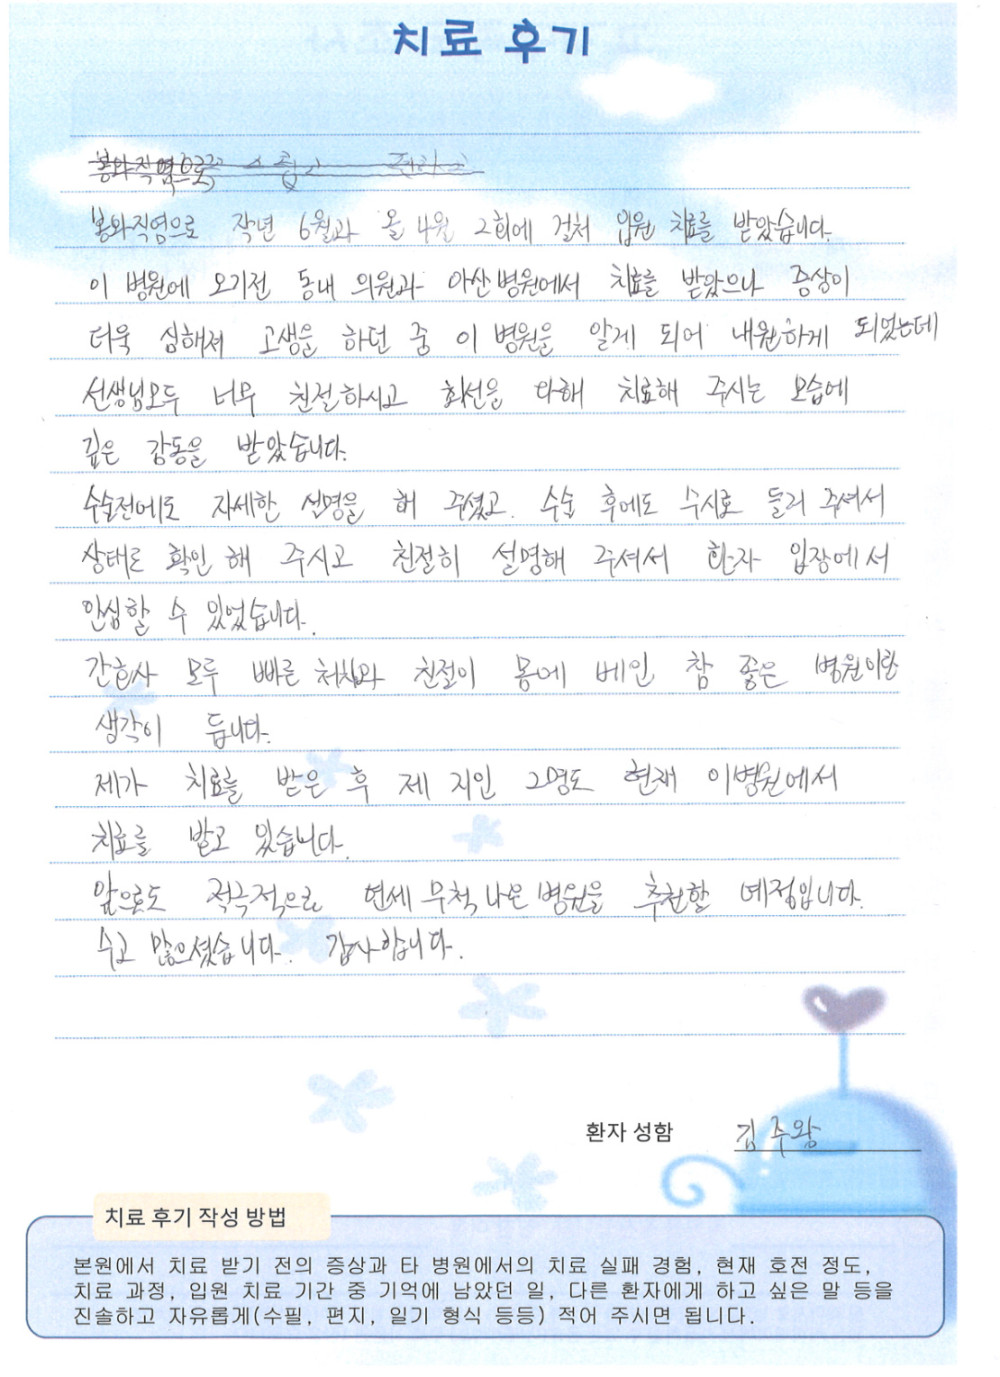 치료 후기
봉와직염으로
봉와직염으로 작년 6월과 올 4월 2회에 걸쳐 입원 치료를 받았습니다.
이 병원에 오기전 동내 의원과 아산병원에서 치료를 받았으나 증상이
더욱 심해져 고생을 하던 중 이 병원을 알게 되어 내원하게 되었는데
선생님모두 너무 친절하시고 최선을 다해 치료해 주시는 모습에
깊은 감동을 받았습니다.
수술전에도 자세한 설명을 해 주셨고. 수술 후에도 수시로 들러 주셔서
상태로 확인 해 주시고 친절히 설명해 주셔서 환자 입장에서
안심할 수 있었습니다.
간호사 모두 빠른 처치와 친절이 몸에 베인 참 좋은 병원이란
생각이 듭니다.
제가 치료를 받은 후 제 지인 2명도 현재 이병원에서
치료를 받고 있습니다.
앞으로도 적극적으로 연세 무척나은 병원을 추천할 예정입니다.
수고 많으셨습니다. 감사합니다.
환자 성함 김주왕
치료 후기 작성 방법
본원에서 치료 받기 전의 증상과 타 병원에서의 치료 실패 경험, 현재 호전 정도,
치료 과정, 입원 치료 기간 중 기억에 남았던 일, 다른 환자에게 하고 싶은 말 등을
진솔하고 자유롭게(수필, 편지, 일기 형식 등등) 적어 주시면 됩니다.